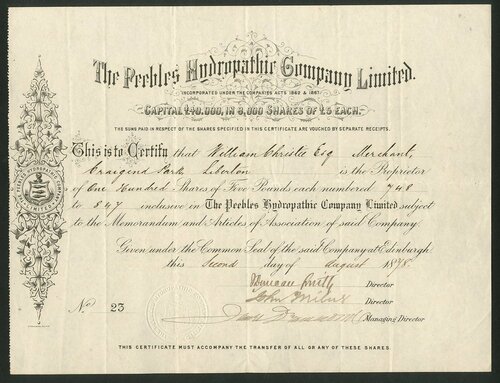 The Peebles Hydropathic Company Limited.
INCORPORATED UNDER THE COMPANIES ACTS 1862 & 1867.
CAPITAL £40,000, IN 8,000 SHARES OF £5 EACH.
THE SUMS PAID IN RESPECT OF THE SHARES SPECIFIED IN THIS CERTIFICATE ARE VOUCHED BY SEPARATE RECEIPTS.
This is to Certify that William Christie Esq Merchant,
Craigend Park Liberton is the Proprietor
of One Hundred Shares of Five Pounds each numbered 748
to 847 inclusive in The Peebles Hydropathic Company Limited subject
to the Memorandum and Articles of Association of said Company.
Given under the Common Seal of the said Company at Edinburgh
this Second day of August 1878.
Smith Director
John Director
No 23
Managing Director
THIS CERTIFICATE MUST ACCOMPANY THE TRANSFER OF ALL OR ANY OF THESE SHARES.